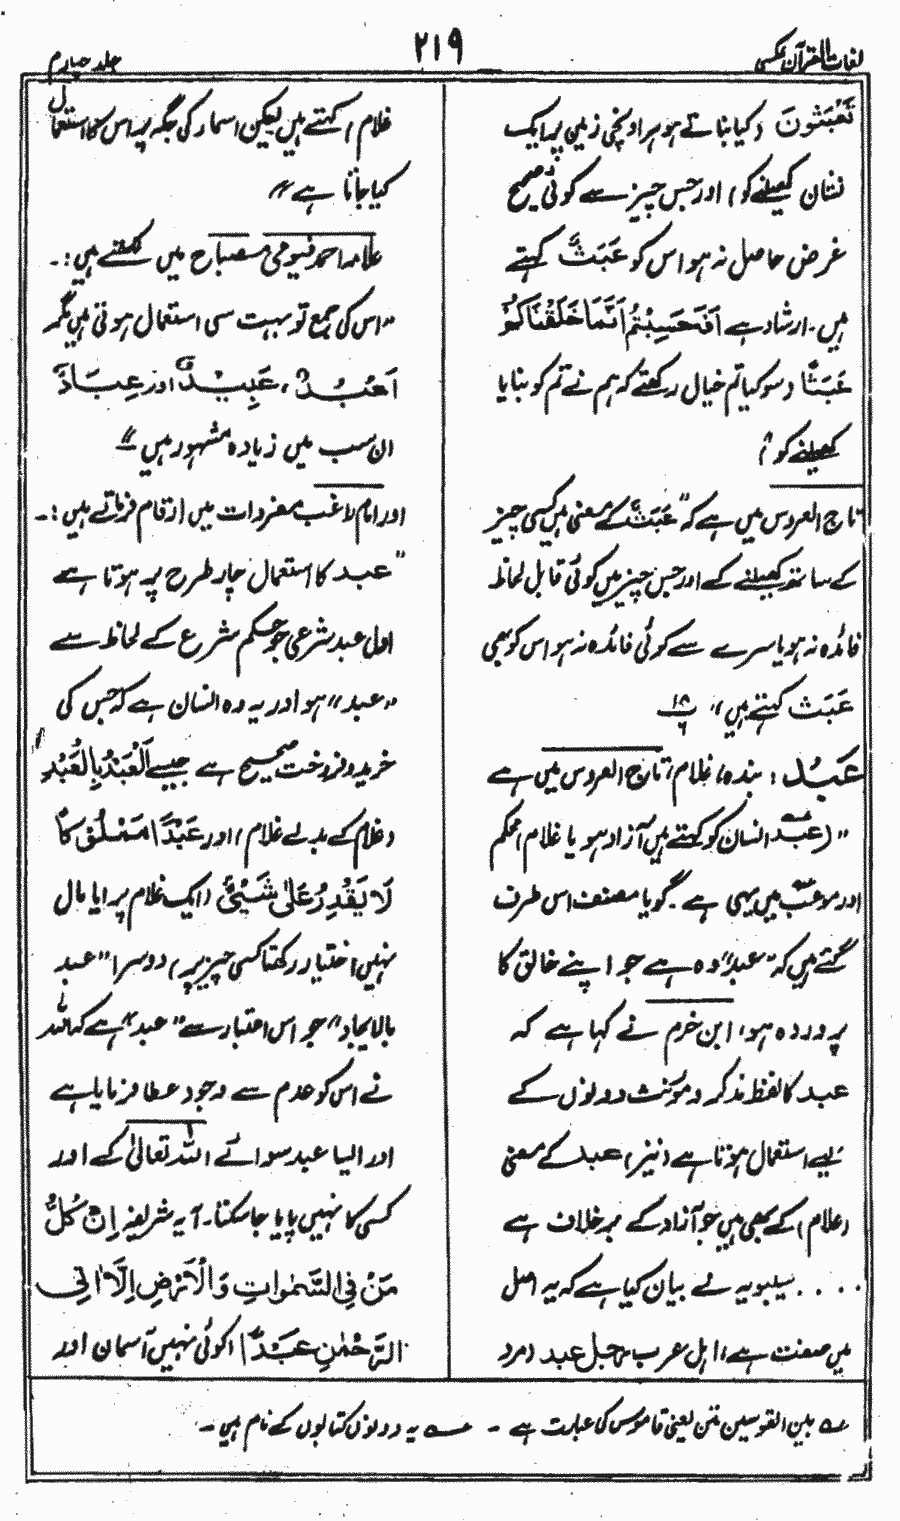 لغات القرآن عکسی
۲۱۹
جلد چہارم
تَعْبَثُونَ (کیا بناتے ہو ہر اونچی زمین پر ایک
نشان کھیلنے کو) اور جس چیز سے کوئی صحیح
غرض حاصل نہ ہو اس کو عَبَثٌ کہتے
ہیں۔ ارشاد ہے اَفَحَسِبْتُمْ اَنَّمَا خَلَقْنَاكُمْ
عَبَثًا (سو کیا تم خیال رکھتے کہ ہم نے تم کو بنایا
کھیلنے کو)
تاج العروس میں ہے کہ "عَبَثٌ کے معنی ہیں کسی چیز
کے ساتھ کھیلنے کے اور جس چیز میں کوئی قابل لحاظ
فائدہ نہ ہو یا سرے سے کوئی فائدہ نہ ہو اس کو بھی
عَبَث کہتے ہیں" ۱۸/۶
عَبْدٌ : بندہ، غلام، تاج العروس میں ہے
"(عَبْدٌ انسان کو کہتے ہیں آزاد ہو یا غلام) محکم
اور موعب میں یہی ہے۔ گویا مصنف اس طرف
گئے ہیں کہ "عبد" وہ ہے جو اپنے خالق کا
پروردہ ہو، ابن حزم نے کہا ہے کہ
عبد کا لفظ مذکر و مؤنث دونوں کے
لیے استعمال ہوتا ہے (نیز) عبد کے معنی
(غلام) کے بھی ہیں جو آزاد کے برخلاف ہے
.... سیبویہ نے بیان کیا ہے کہ یہ اصل
میں صفت ہے، اہل عرب رجل عبد (مرد
غلام) کہتے ہیں لیکن اسماء کی جگہ پر اس کا استعمال
کیا جاتا ہے"
علامہ احمد فیومی مصباح میں لکھتے ہیں:۔
"اس کی جمع تو بہت سی استعمال ہوتی ہیں مگر
اَعْبُدٌ، عَبِيْدٌ اور عِبَادٌ
ان سب میں زیادہ مشہور ہیں"
اور امام راغب مفردات میں ارقام فرماتے ہیں:۔
"عبد کا استعمال چار طرح پر ہوتا ہے
اول عبد شرعی جو حکم شرع کے لحاظ سے
"عبد" ہو اور یہ وہ انسان ہے کہ جس کی
خرید و فروخت صحیح ہے جیسے اَلْعَبْدُ بِالْعَبْدِ
(غلام کے بدلے غلام) اور عَبْدًا مَّمْلُوْكًا
لَا يَقْدِرُ عَلٰى شَيْئٍ (ایک غلام پرایا مال
نہیں اختیار رکھتا کسی چیز پر) دوسرا "عبد
بالایجاد" جو اس اعتبار سے "عبد" ہے کہ اللہ
نے اس کو عدم سے وجود عطا فرمایا ہے
اور ایسا عبد سوائے اللہ تعالیٰ کے اور
کسی کا نہیں پایا جا سکتا۔ آیہ شریفہ اِنْ كُلُّ
مَنْ فِي السَّمٰوَاتِ وَالْاَرْضِ اِلَّا اٰتِي
الرَّحْمٰنِ عَبْدًا (کوئی نہیں آسمان اور
ے بین القوسین متن یعنی قاموس کی عبارت ہے ۔ ے یہ دونوں کتابوں کے نام ہیں۔